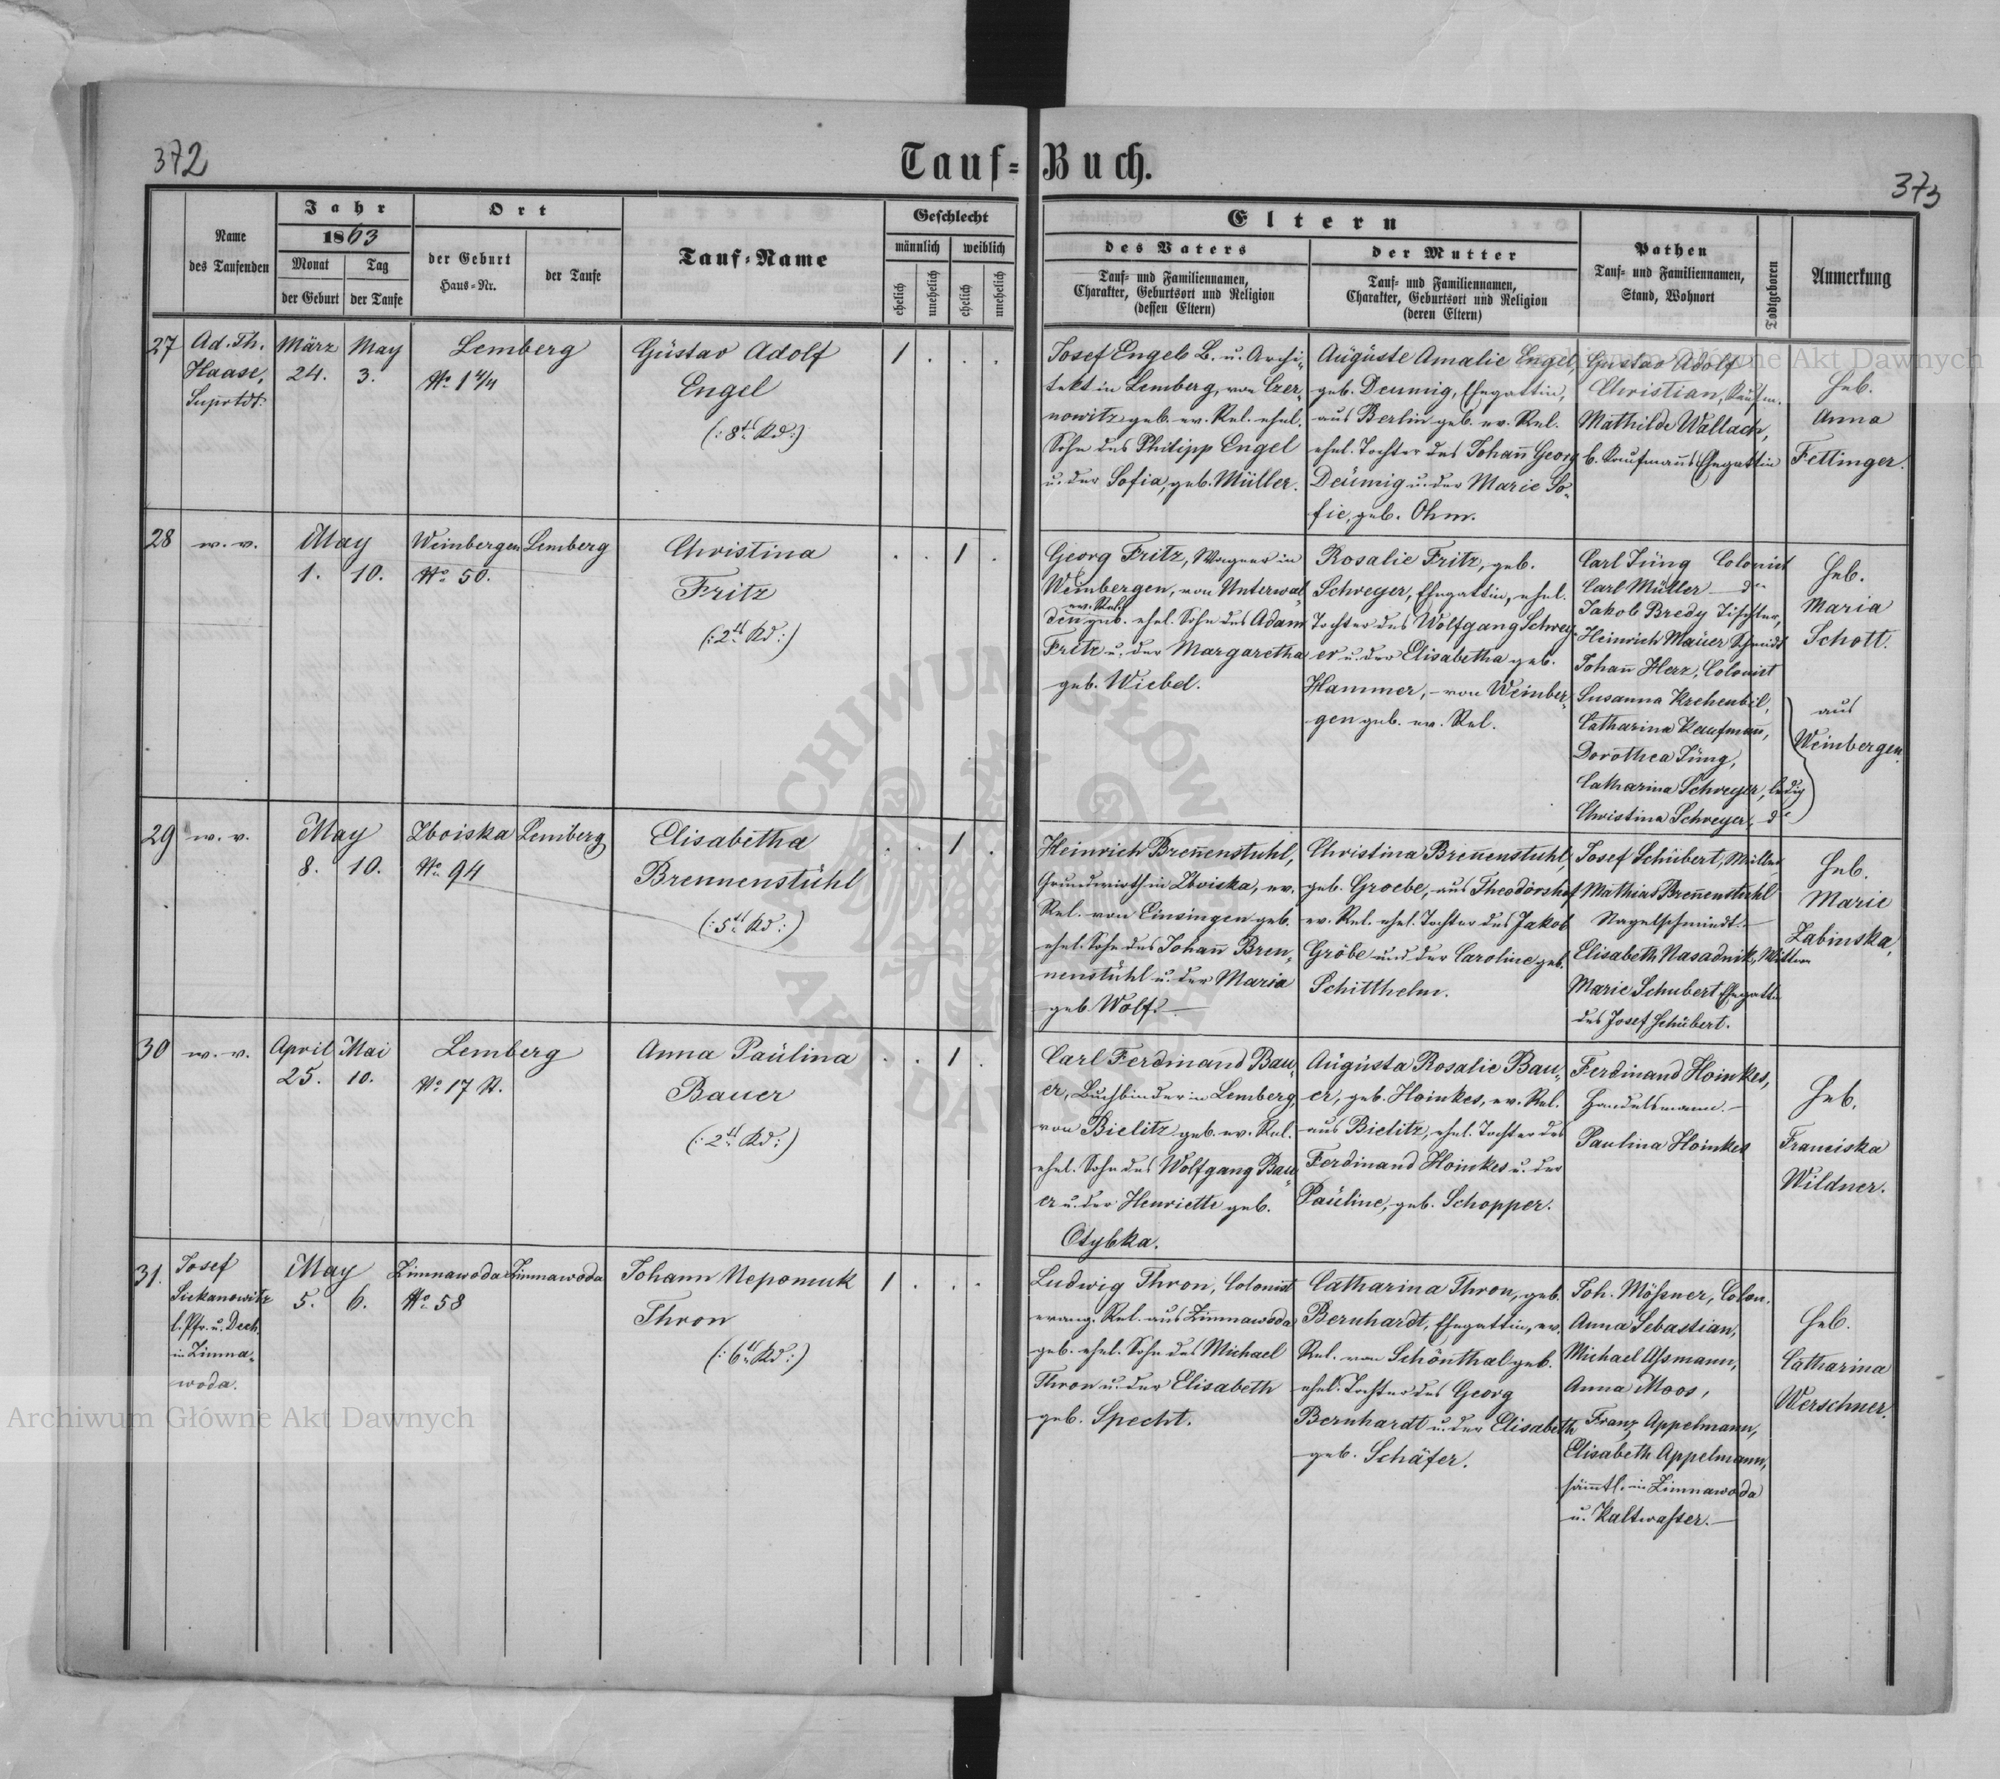 372
Tauf-Buch.
373
Name
des Taufenden
Jahr
1863
Monat
der Geburt
Tag
der Taufe
Ort
der Geburt
Haus-Nr.
der Taufe
Tauf-Name
Geschlecht
männlich
weiblich
ehelich
unehelich
ehelich
unehelich
Eltern
des Vaters
Tauf- und Familiennamen,
Charakter, Geburtsort und Religion
(dessen Eltern)
der Mutter
Tauf- und Familiennamen,
Charakter, Geburtsort und Religion
(deren Eltern)
Pathen
Tauf- und Familiennamen,
Stand, Wohnort
Todtgeboren
Anmerkung
27
Ad. Th.
Haase,
Suprtdt.
März
24.
May
3.
Lemberg
No. 1 4/4
Gustav Adolf
Engel
(: 8tes Kd :)
1 . . .
Josef Engel, B. u. Archi-
tekt in Lemberg, von Czer-
nowitz geb. ev. Rel. ehel.
Sohn des Philipp Engel
u. der Sofia, geb. Müller.
Auguste Amalie Engel,
geb. Deumig, Ehegattin,
aus Berlin geb. ev. Rel.
ehel. Tochter des Johann Georg
Deumig u. der Marie So-
fie, geb. Ohm.
Gustav Adolf
Christian, Kaufm.
Mathilde Wallach,
b. Kaufmanns Ehegattin
Heb.
Anna
Fettinger.
28
w. v.
May
1. 10.
Weinbergen
No. 50.
Lemberg
Christina
Fritz
(: 2tes Kd :)
. . 1 .
Georg Fritz, Wagner in
Weinbergen, von Unterwal-
ev. Rel.
den geb. ehel. Sohn des Adam
Fritz u. der Margaretha
geb. Wiebel.
Rosalie Fritz, geb.
Schreyer, Ehegattin, ehel.
Tochter des Wolfgang Schrey-
er u. der Elisabetha geb.
Hammer, - von Weinber-
gen geb. ev. Rel.
Carl Jung Colonist
Carl Müller — do
Jakob Bredy Tischler,
Heinrich Mauer Schmidt
Johann Herz, Colonist
Susanna Krehenbil,
Catharina Kaufmann,
Dorothea Jung,
Catharina Schreyer, ledig
Christina Schreyer, do
Heb.
Maria
Schott.
aus
Weinbergen.
29
w. v.
May
8. 10.
Zboiska
No. 94
Lemberg
Elisabetha
Brennenstuhl
(: 5tes Kd :)
. . 1 .
Heinrich Brennenstuhl,
Grundwirth in Zboiska, ev.
Rel. von Einsingen geb.
ehel. Sohn des Johann Bren-
nenstuhl u. der Maria
geb. Wolf. —
Christina Brennenstuhl,
geb. Groebe, aus Theodorshof
ev. Rel. ehel. Tochter des Jakob
Gröbe und der Caroline geb.
Schitthelm.
Josef Schubert, Müller,
Mathias Brennenstuhl
Nagelschmiedt. —
Elisabeth Nasadnik, Wittwe
Marie Schubert Ehegattin
des Josef Schubert.
Heb.
Marie
Zabinska,
30
w. v.
April
25.
Mai
10.
Lemberg
No. 17 St.
Anna Paulina
Bauer
(: 2tes Kd :)
. . 1 .
Carl Ferdinand Bau-
er, Buchbinder in Lemberg,
von Bielitz geb. ev. Rel.
ehel. Sohn des Wolfgang Bau-
er u. der Henriette geb.
Otybka.
Augusta Rosalie Bau-
er, geb. Hoinkes, ev. Rel.
aus Bielitz, ehel. Tochter des
Ferdinand Hoinkes u. der
Pauline, geb. Schopper.
Ferdinand Hoinkes,
Handelsmann. —
Paulina Hoinkes
Heb.
Franciska
Wildner.
31.
Josef
Siekanowitz
l. Pfr. u. Dech.
in Zimna-
woda.
May
5. 6.
Zimnawoda
No. 58
Zimnawoda
Johann Nepomuk
Thron
(: 6tes Kd :)
1 . . .
Ludwig Thron, Colonist
evang. Rel. aus Zimnawoda
geb. ehel. Sohn des Michael
Thron u. der Elisabeth
geb. Specht.
Catharina Thron, geb.
Bernhardt, Ehegattin, ev.
Rel. von Schönthal geb.
ehel. Tochter des Georg
Bernhardt u. der Elisabeth
geb. Schäfer.
Joh. Mößner, Colon.
Anna Sebastian,
Michael Aßmann,
Anna Moos,
Franz Appelmann,
Elisabeth Appelmann,
sämmtl. in Zimnawoda
u. Kaltwasser. —
Heb.
Catharina
Werschner.
Archiwum Główne Akt Dawnych
Archiwum Główne Akt Dawnych